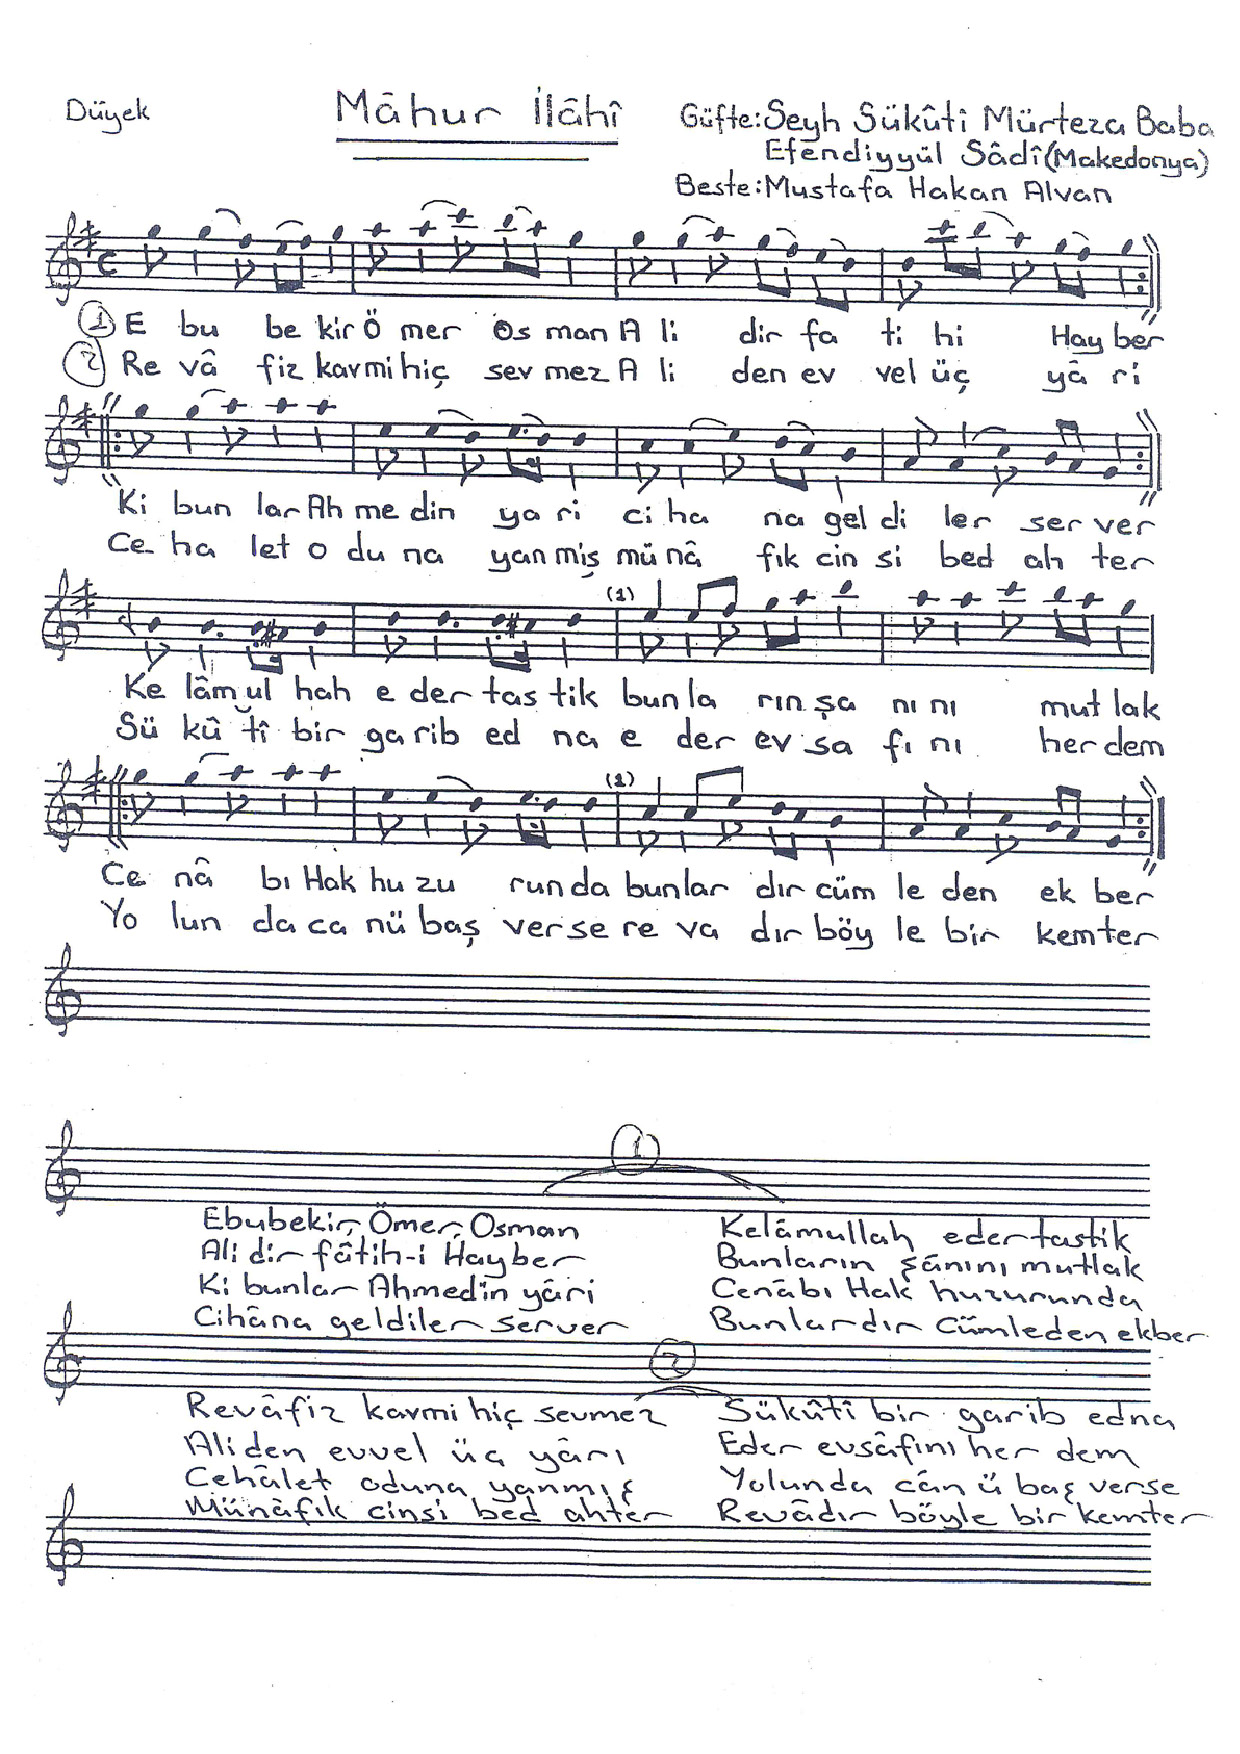 Düyek
Mâhur İlâhî
Güfte: Seyh Sükûtî Mürteza Baba
Efendiyyül Sâdî (Makedonya)
Beste: Mustafa Hakan Alvan
1 E bu be kir Ö mer Os man A li dir fa ti hi Hay ber
2 Re vâ fiz kavmi hiç sev mez A li den ev vel üç yâ ri
Ki bun lar Ah me din ya ri ci ha na gel di ler ser ver
Ce ha let o du na yan miş mü nâ fık cin si bed ah ter
(1)
Ke lâm ul hah e der tas tik bun la rın şa nı nı mut lak
Sü kû tî bir ga rib ed na e der ev sa fı nı her dem
(1)
Ce nâ bı Hak hu zu run da bunlar dır cüm le den ek ber
Yo lun da ca nü baş ver se re va dır böy le bir kemter
1
Ebubekir, Ömer, Osman
Ali dir fâtih-i Hayber
Ki bunlar Ahmed'in yâri
Cihâna geldiler server
Kelâmullah eder tastik
Bunların şânını mutlak
Cenâbı Hak huzurunda
Bunlardır Cümleden ekber
2
Revâfiz kavmi hiç sevmez
Ali den evvel üç yârı
Cehâlet oduna yanmış
Münâfık cinsi bed ahter
Sükûtî bir garib edna
Eder evsâfını her dem
Yolunda cân ü baş verse
Revâdır böyle bir kemter